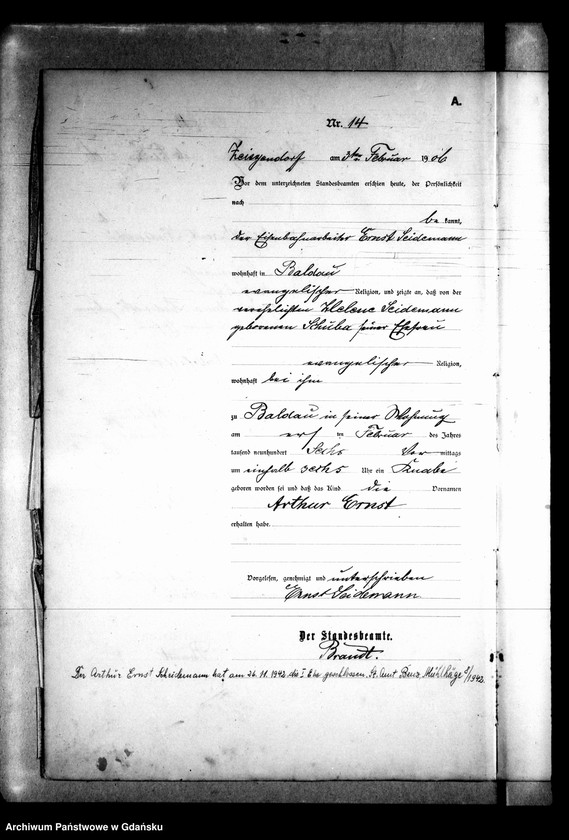 A.
Nr. 14
Zeisgendorf am 3ten Februar 1906
Vor dem unterzeichneten Standesbeamten erschien heute, der Persönlichkeit
nach
be kannt,
der Eisenbahnarbeiter Ernst Seidemann
wohnhaft in Baldau
evangelischer Religion, und zeigte an, daß von der
verehelichten Helene Seidemann
geborenen Schuba seiner Ehefrau
evangelischer Religion,
wohnhaft bei ihm
zu Baldau in seiner Wohnung
am ten Februar des Jahres
tausend neunhundert Sechs Vor mittags
um einhalb sechs Uhr ein Knabe
geboren worden sei und daß das Kind die Vornamen
Arthur Ernst
erhalten habe.
Vorgelesen, genehmigt und unterschrieben
Ernst Seidemann
Der Standesbeamte.
Brandt.
Der Arthur Ernst hat am 26.11.1942 die I. Ehe geschlossen. St. Amt /1942.
Archiwum Państwowe w Gdańsku